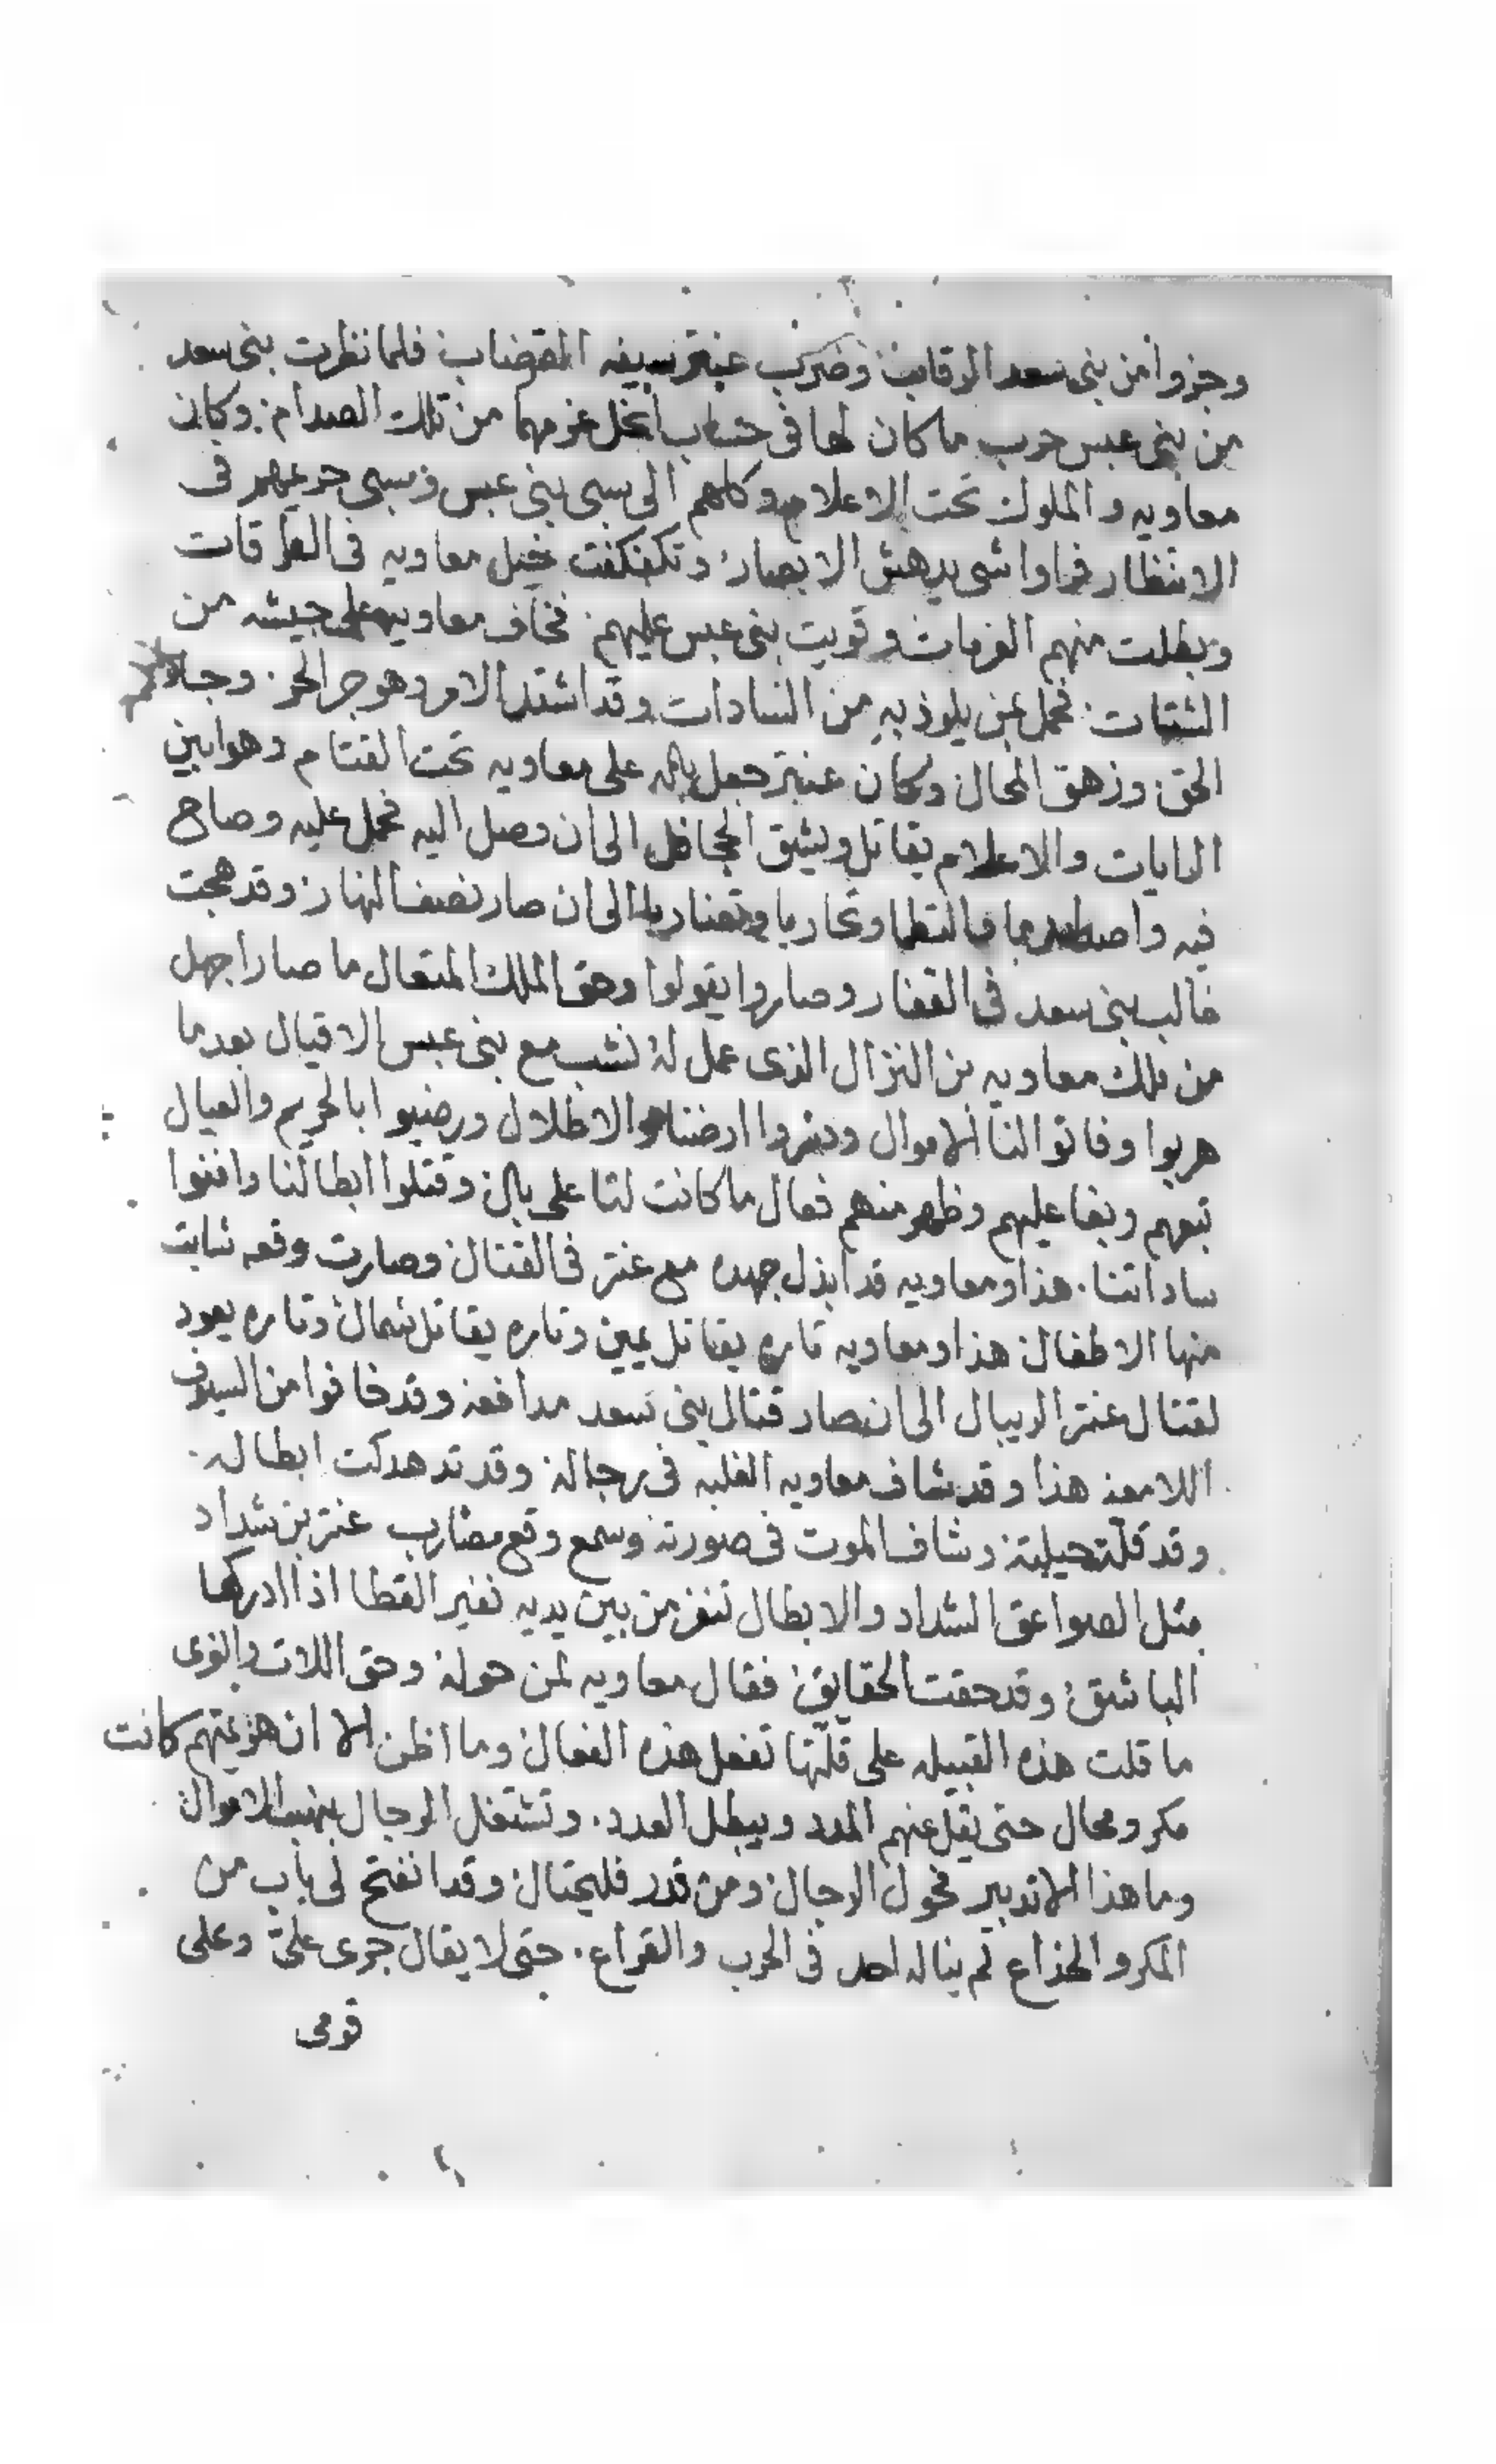 وجزوا من بنى سعد الرقاب وضرب عنتر بسيفه القضاب فلما نظرت بنى سعد
من بنى عبس حرب ما كان لها فى حساب انحل عزمهما من تلك الصدام وكان
معاويه والملوك تحت الاعلام وكلهم الى سبى بنى عبس وسبى حريمهم فى
الانتظار فراوا شى يدهش الابصار وتكفكفت خيل معاويه فى الطرقات
وبطلت منهم العزمات وقويت بنى عبس عليهم فخاف معاويه على جيشه من
الشتات فحمل بمن يلوذ به من السادات وقد اشتد الامر وهو جر الحر وجا
الحق وزهق المحال وكان عنتر جعل باله على معاويه تحت القتام وهو ابين
الرايات والاعلام يقاتل ويشق الجحافل الى ان وصل اليه فحمل عليه وصاح
فيه واصطدما والتطما وتحاربا وتضاربا الى ان صار نصف النهار وقد هجت
غالب بنى سعد فى القفار وصاروا يقولوا وحق الملك المتعال ما صار اجهل
من ملك معاويه بن النزال الذى عمل له نشب مع بنى عبس الاقيال بعد ما
هربوا وفاتوا لنا الاموال ودشروا ارضنا والاطلال ورضيوا بالحريم والعيال
تبعهم وبغا عليهم وظهر منهم فعال ما كانت لنا على بال وقتلوا ابطالنا وافنوا
ساداتنا. هذا ومعاويه قد ابذل جهده مع عنتر فى القتال وصارت وقعه تشابت
منها الاطفال هذا ومعاويه تاره يقاتل يمين وتاره يقاتل شمال وتاره يعود
لقتال عنتر الريبال الى ان صار قتال بنى سعد مدافعه وقد خافوا من السيوف
اللامعه هذا وقد شاف معاويه الغلبه فى رجاله وقد تدهدكت ابطاله
وقد قلت حيلته وشاف الموت فى صورته وسمع وقع مضارب عنتر بن شداد
مثل الصواعق الشداد والابطال تنفر من بين يديه نفير القطا اذا ادركها
الباشق وقد حقت الحقايق فقال معاويه لمن حوله وحق اللات والعزى
ما قلت هذه القبيله على قلتها تفعل هذه الفعال وما اظن الا ان هزيمتهم كانت
مكر ومحال حتى يقل عنهم المدد ويبطل العدد. وتشتغل الرجال بنهب الاموال
وما هذا الا تدبير فحول الرجال ومن قدر فليحتال وقد انفتح لى باب من
المكر والخداع لم يناله احد فى الحرب والقراع. حتى لا يقال جرى علىّ وعلى
قومى